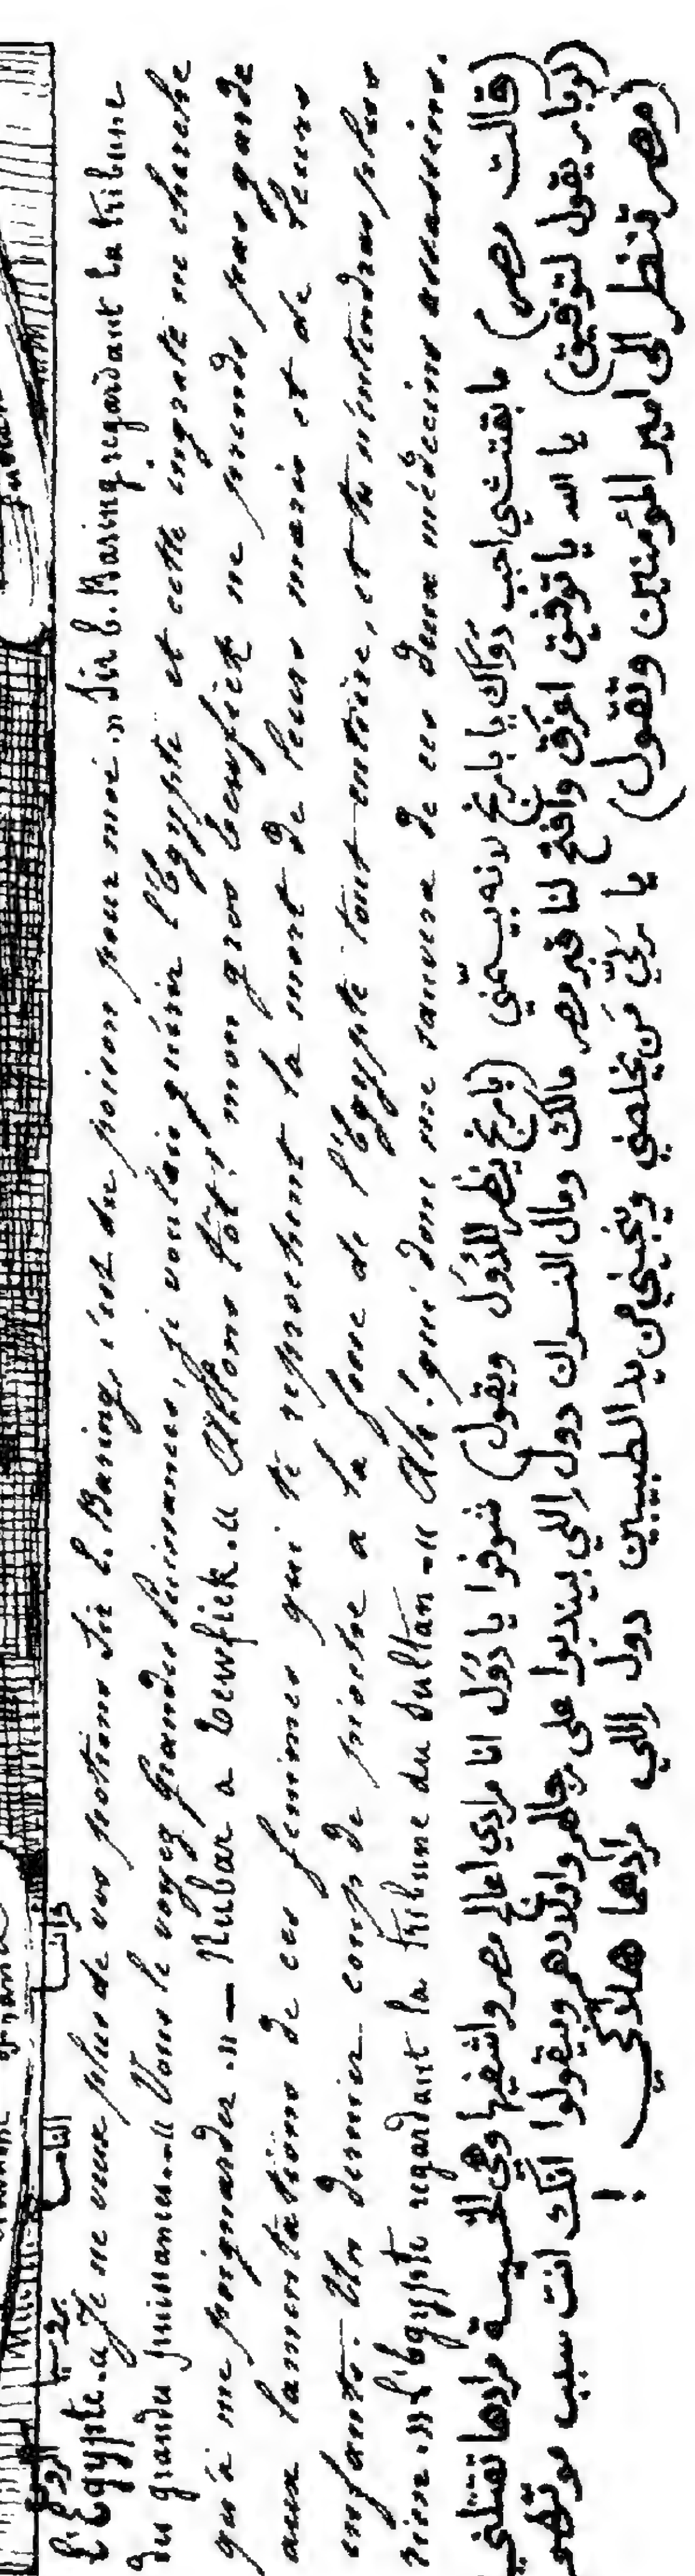 فرانسا
النمسا
L'Egypte. « Je ne veux plus de vos potions Sir E. Baring, c'est du poison pour moi. » Sir E. Baring regardant la tribune
des grandes puissances. « Vous le voyez grandes Puissances, je voulais guérir l'Egypte et cette ingrate ne cherche
qu'à me poignarder. » — Nubar a Tewfick. « Allons tôt! mon gros Tewfick ne prends pas garde
aux lamentations de ces femmes qui te reprochent la mort de leurs maris et de leurs
enfants. Un dernier coup de pioche a la fosse de l'Egypte tout entière, et tu n'entendras plus
rien. » L'Egypte regardant la tribune du Sultan — « Ah! qui donc me sauvera de ces deux médecins assassins.
(قالت مصر) ما بقتشي احب دواك يا بارنج لانه بيسمّني (بارنج ينظر للدُوَل ويقول) شوفوا يا دُوَل انا مرادي اعالج مصر واشفيها وهي الخسيسة مرادها تقتلني
(نوبار يقول لتوفيق) يا الله يا توفيق اعزق وافتح لنا قبر مصر مالك ومال النسوان دول اللي بيندبوا على رجالهم واولادهم وبيقولوا انك انت سبب موتهم
(مصر تنظر الى امير المؤمنين وتقول) يا ربّي مَن يخلصني وينجيني من يد الطبيبين دول اللي مرادهما هلاكي !